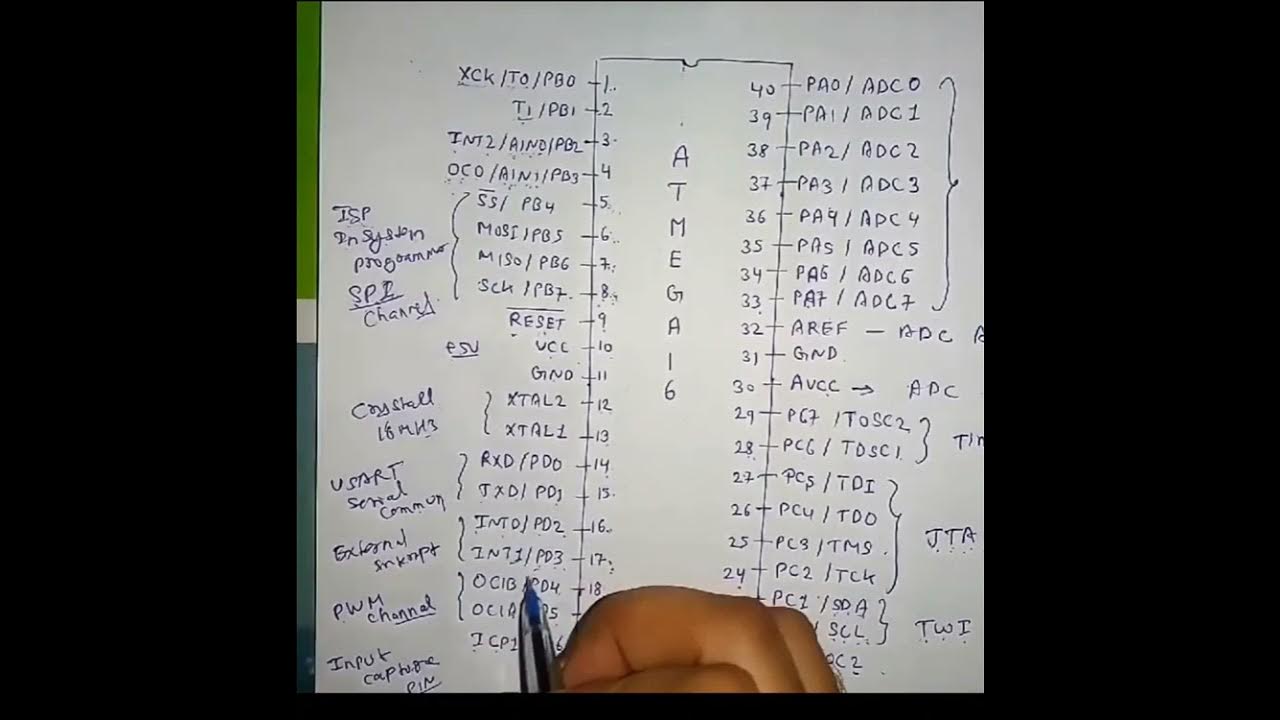 XCK/T0/PB0 1.
T1/PB1 2
INT2/AIN0/PB2 3.
OC0/AIN1/PB3 4
SS/ PB4 5.
MOSI/PB5 6.
MISO/PB6 7.
SCK/PB7. 8.
RESET 9
VCC 10
GND 11
XTAL2 12
XTAL1 13
RXD/PD0 14
TXD/PD1 15.
INT0/PD2 16.
INT1/PD3 17.
OC1B/PD4 18
OC1A
ICP1
ISP
Insystem
programmer
SPI
Channel.
Crystall
16MHz
USART
Serial
Commun
External
PWM
channel
Input
capture
PIN
ATMEGA16
40 PA0/ ADC0
39 PA1/ ADC1
38 PA2/ ADC2
37 PA3/ ADC3
36 PA4/ ADC4
35 PA5/ ADC5
34 PA6/ ADC6
33 PA7/ ADC7
32 AREF – ADC A
31 GND.
30 AVCC → ADC
29 PC7 /TOSC2
28 PC6 / TOSC1
27 PC5/ TDI
26 PC4/ TDO
25 PC3/TMS.
24 PC2 /TCK
PC1 /SDA
/ SCL
OC2
JTA
TWI